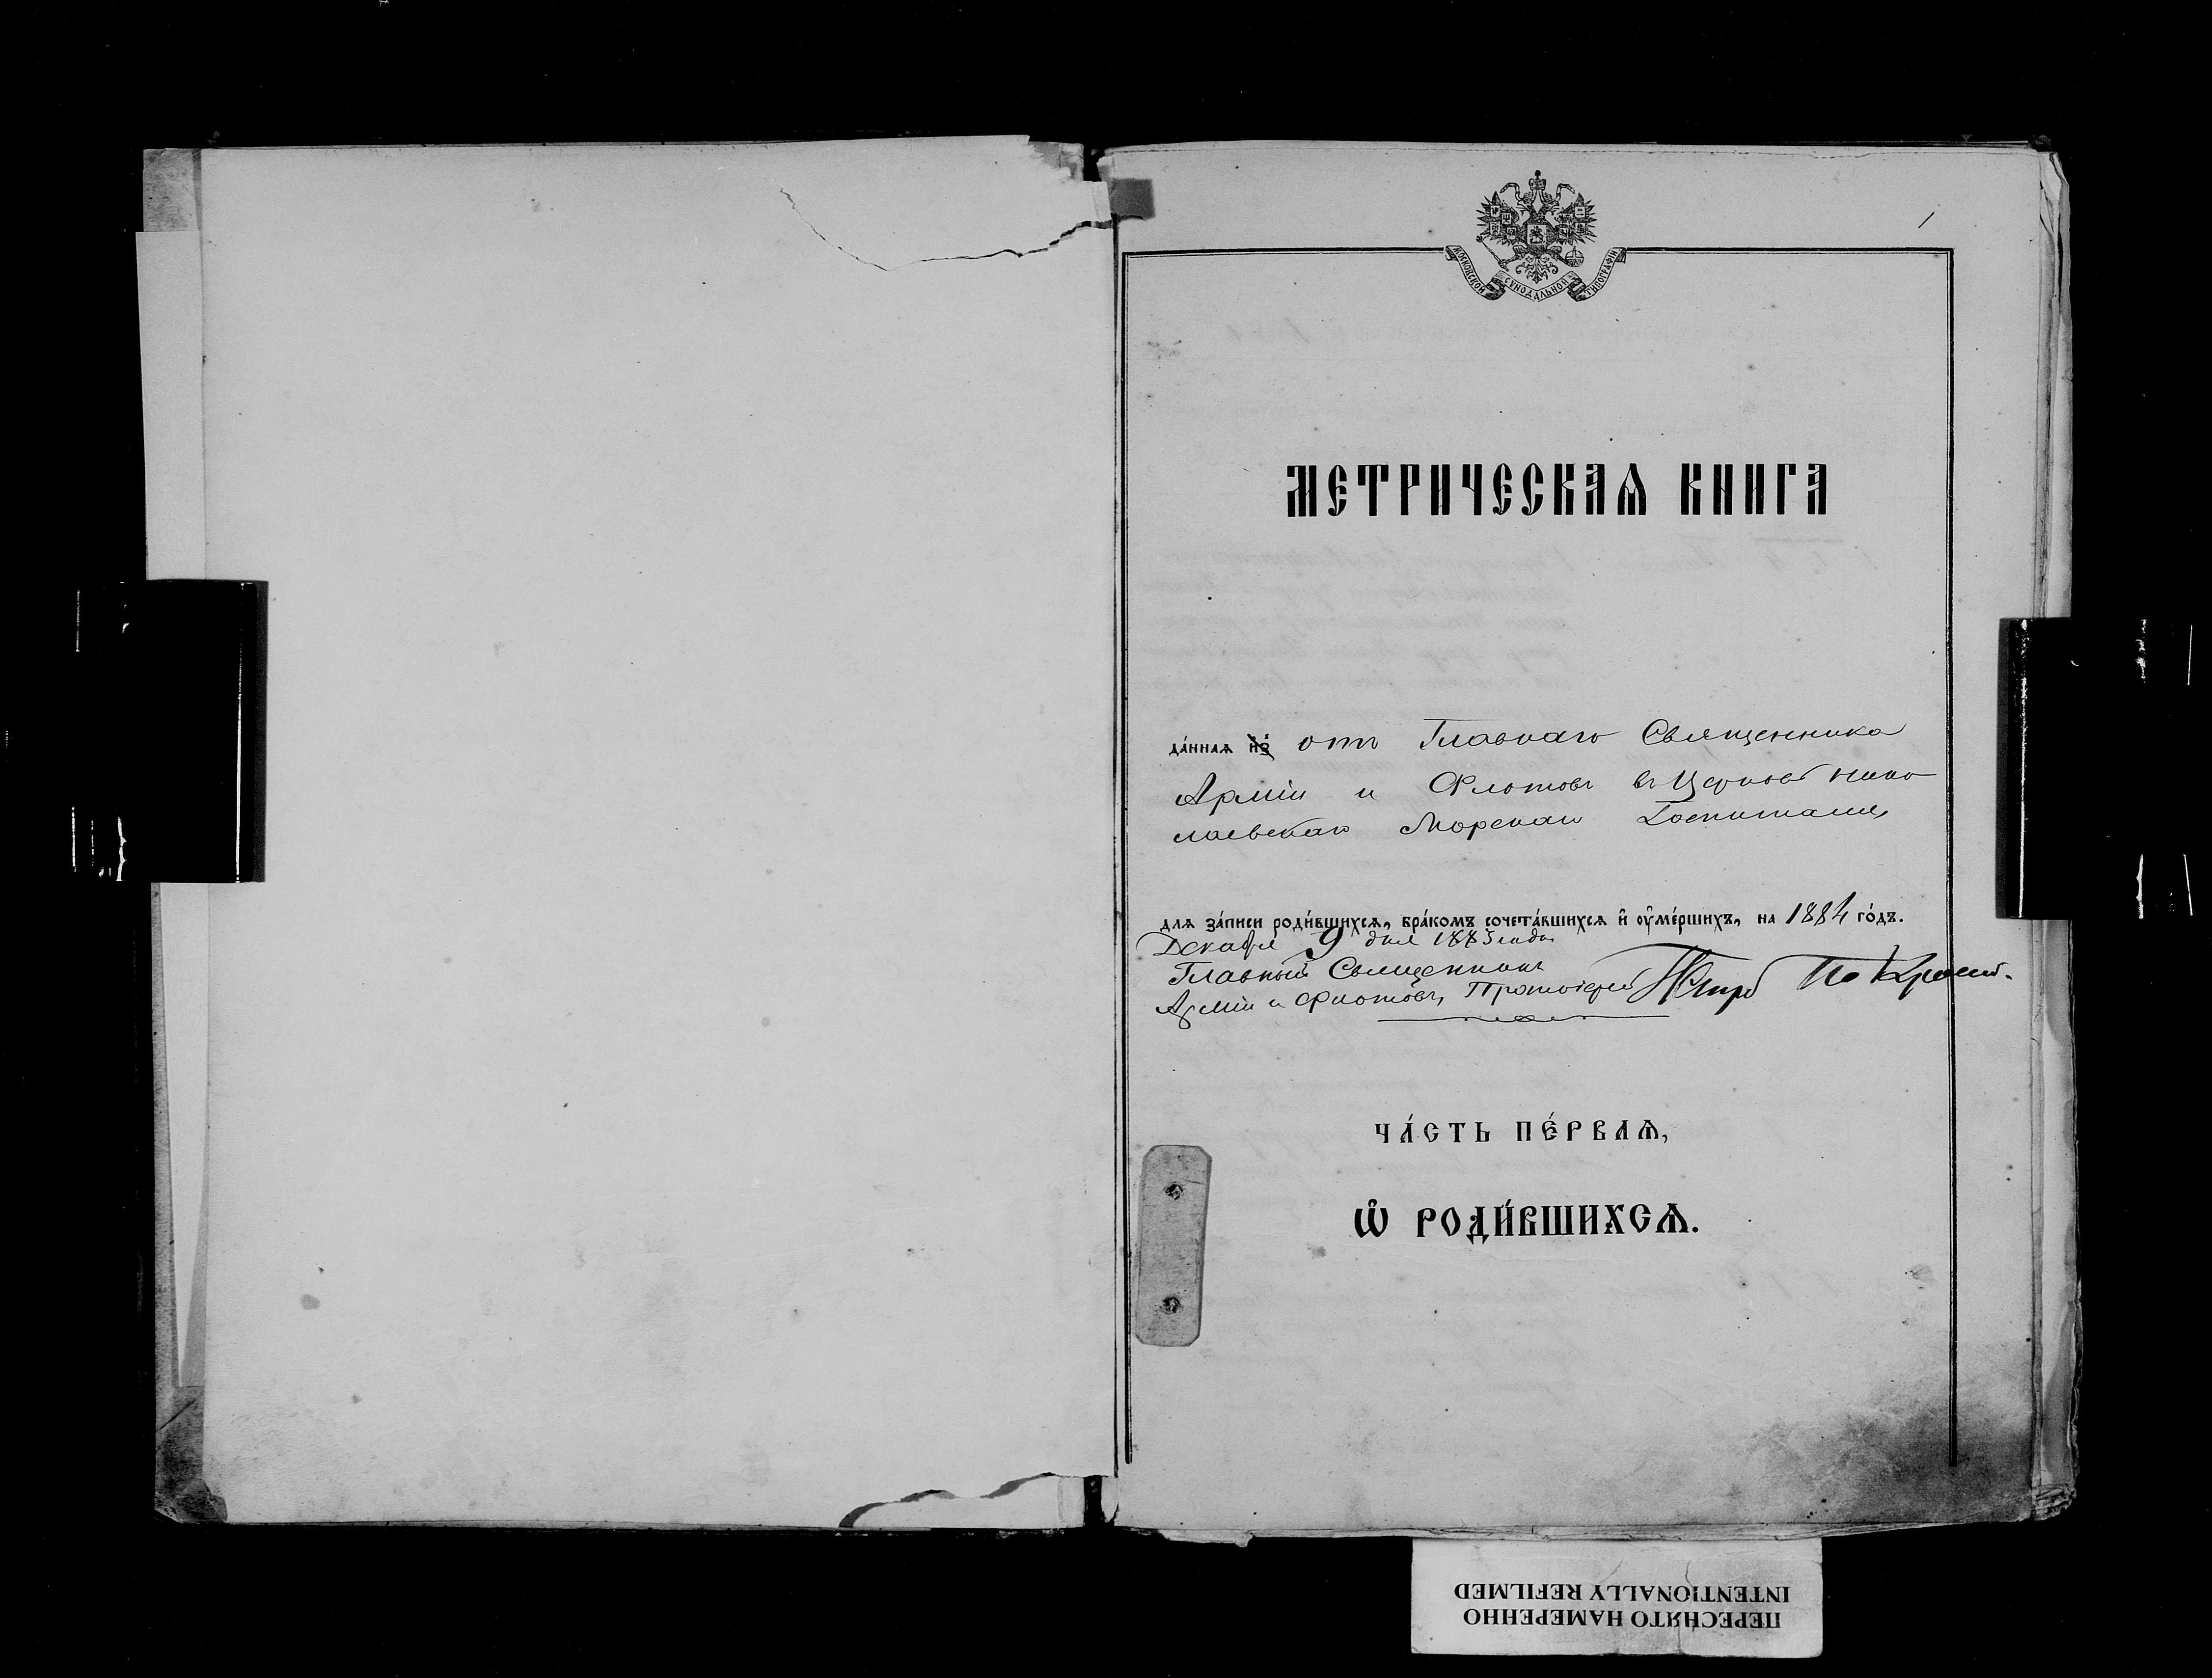 1
МОСКОВСКОЙ СѴНОДАЛЬНОЙ ТИПОГРАФІИ
МЕТРИЧЕСКАѦ КНИГА
да́нная отъ Главнаго Священника
Арміи и Флотовъ въ Церковь Нико
лаевскаго Морскаго Госпиталя
для за́писи роди́вшихсѧ, бра́комъ сочета́вшихсѧ и҆ ᲂу҆ме́ршихъ, на 1884 го́дъ.
Декабря 9 дня 1883 года
Главный Священникъ
Арміи и Флотовъ, Протоіерей Петръ Покровс.
ЧА́СТЬ ПЕ́РВАѦ,
Ѡ҆ РОДИ́ВШИХСѦ.
ПЕРЕСНЯТО НАМЕРЕННО
INTENTIONALLY REFILMED